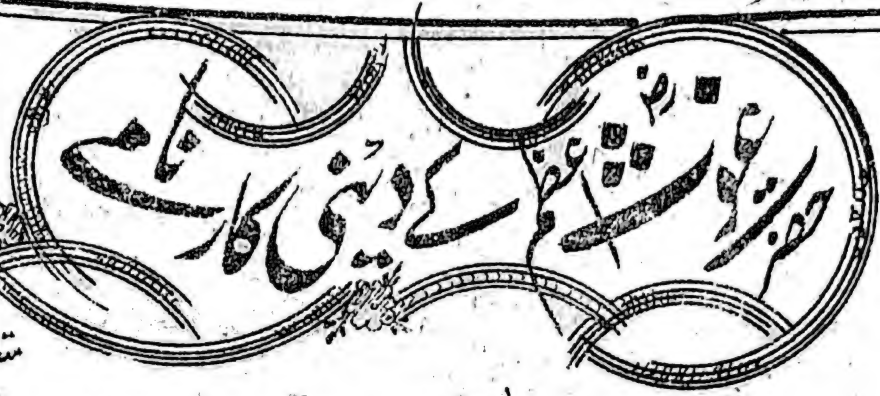 حضرت غوث اعظم رضؓ کے دینی کارنامے